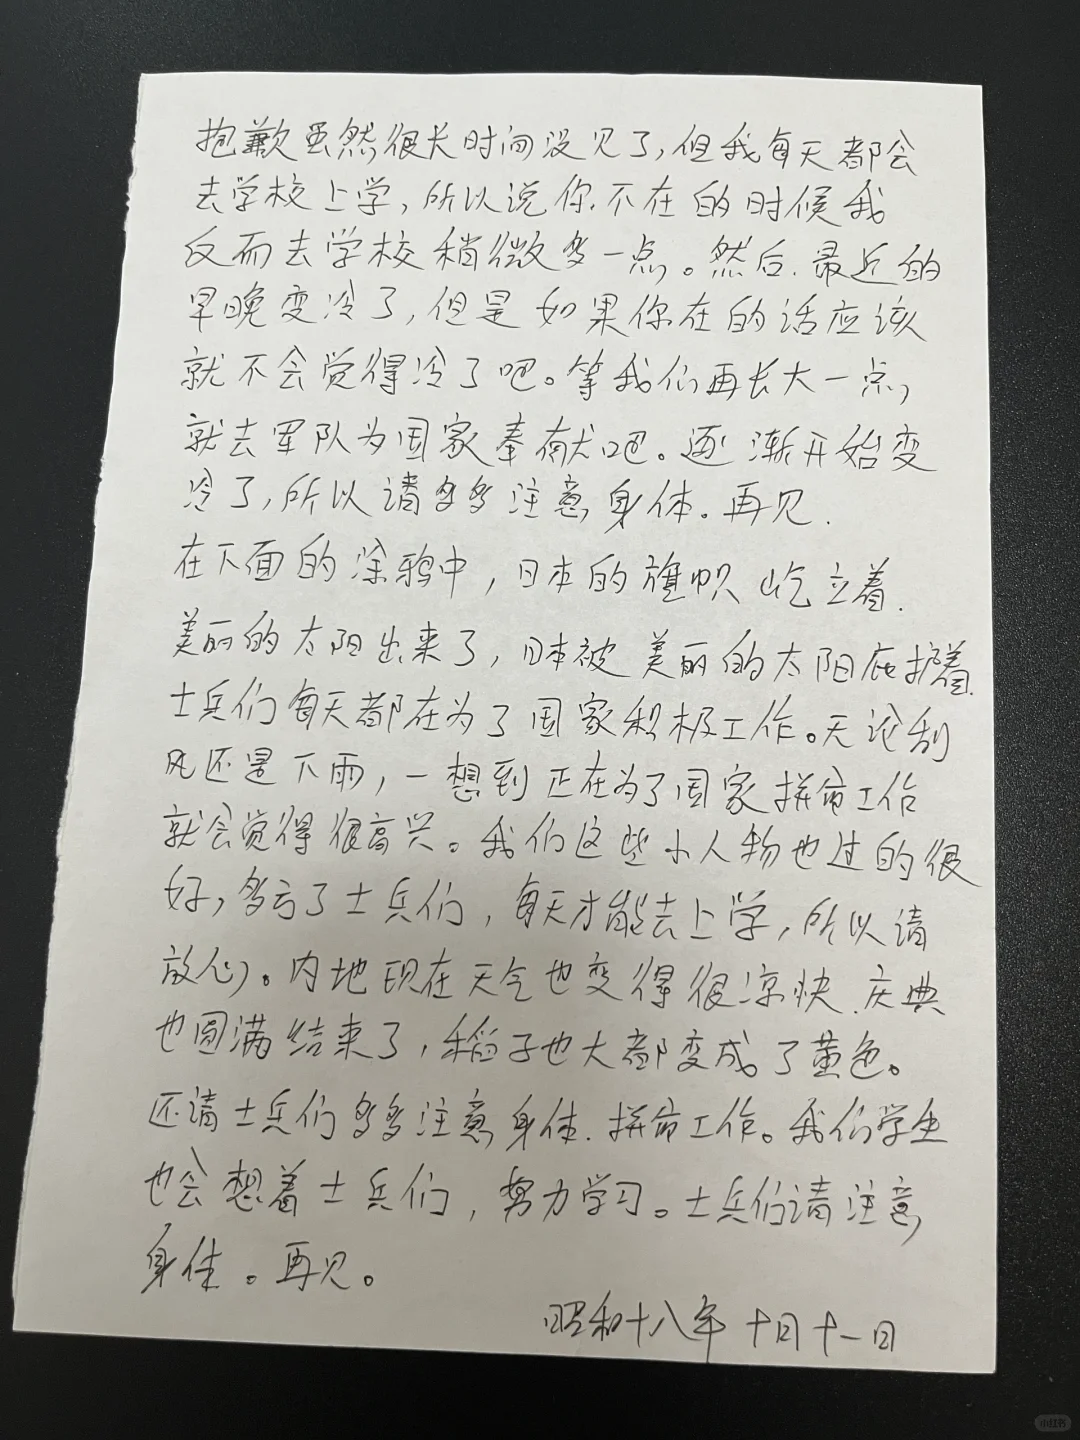 抱歉虽然很长时间没见了,但我每天都会
去学校上学,所以说你不在的时候我
反而去学校稍微多一点。然后.最近的
早晚变冷了,但是如果你在的话应该
就不会觉得冷了吧。等我们再长大一点,
就去军队为国家奉献吧。逐渐开始变
冷了,所以请多多注意身体.再见.
在下面的涂鸦中,日本的旗帜屹立着.
美丽的太阳出来了,日本被美丽的太阳庇护着.
士兵们每天都在为了国家积极工作。无论刮
风还是下雨,一想到正在为了国家拼命工作
就会觉得很高兴。我们这些小人物也过的很
好,多亏了士兵们,每天才能去上学,所以请
放心。内地现在天气也变得很凉快.庆典
也圆满结束了,稻子也大都变成了黄色。
还请士兵们多多注意身体.拼命工作。我们学生
也会想着士兵们,努力学习。士兵们请注意
身体。再见。
昭和十八年 十月十一日
小红书